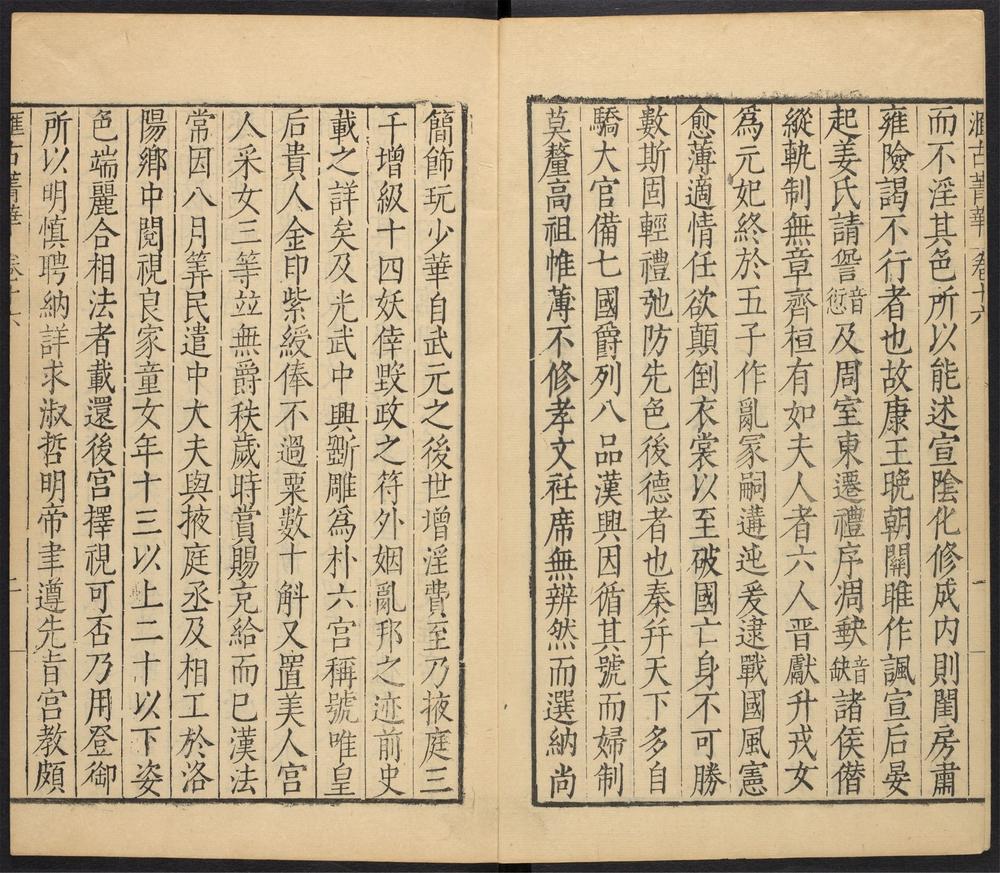 滙古菁華 卷十六
而不淫其色所以能述宣陰化修成内則閨房肅
雍險謁不行者也故康王晩朝關雎作諷宣后晏
起姜氏請諐音愆及周室東遷禮序凋䖏音缺諸侯僣
縱軌制無章齊桓有如夫人者六人晉獻升戎女
爲元妃終於五子作亂冢嗣遘迍爰逮戰國風憲
愈薄適情任欲顛倒衣裳以至破國亡身不可勝
數斯固輕禮弛防先色後德者也秦幷天下多自
驕大官備七國爵列八品漢興因循其號而婦制
莫釐高祖帷薄不修孝文衽席無辨然而選納尚
簡飾玩少華自武元之後世增淫費至乃掖庭三
千增級十四妖倖毁政之符外姻亂邦之迹前史
載之詳矣及光武中興斵雕爲朴六宫稱號唯皇
后貴人金印紫綬俸不過粟數十斛又置美人宫
人采女三等竝無爵秩歲時賞賜充給而已漢法
常因八月筭民遣中大夫與掖庭丞及相工於洛
陽鄉中閱視良家童女年十三以上二十以下姿
色端麗合相法者載還後宫擇視可否乃用登御
所以明慎聘納詳求淑哲明帝聿遵先旨宫教頗
滙古菁華 卷十六